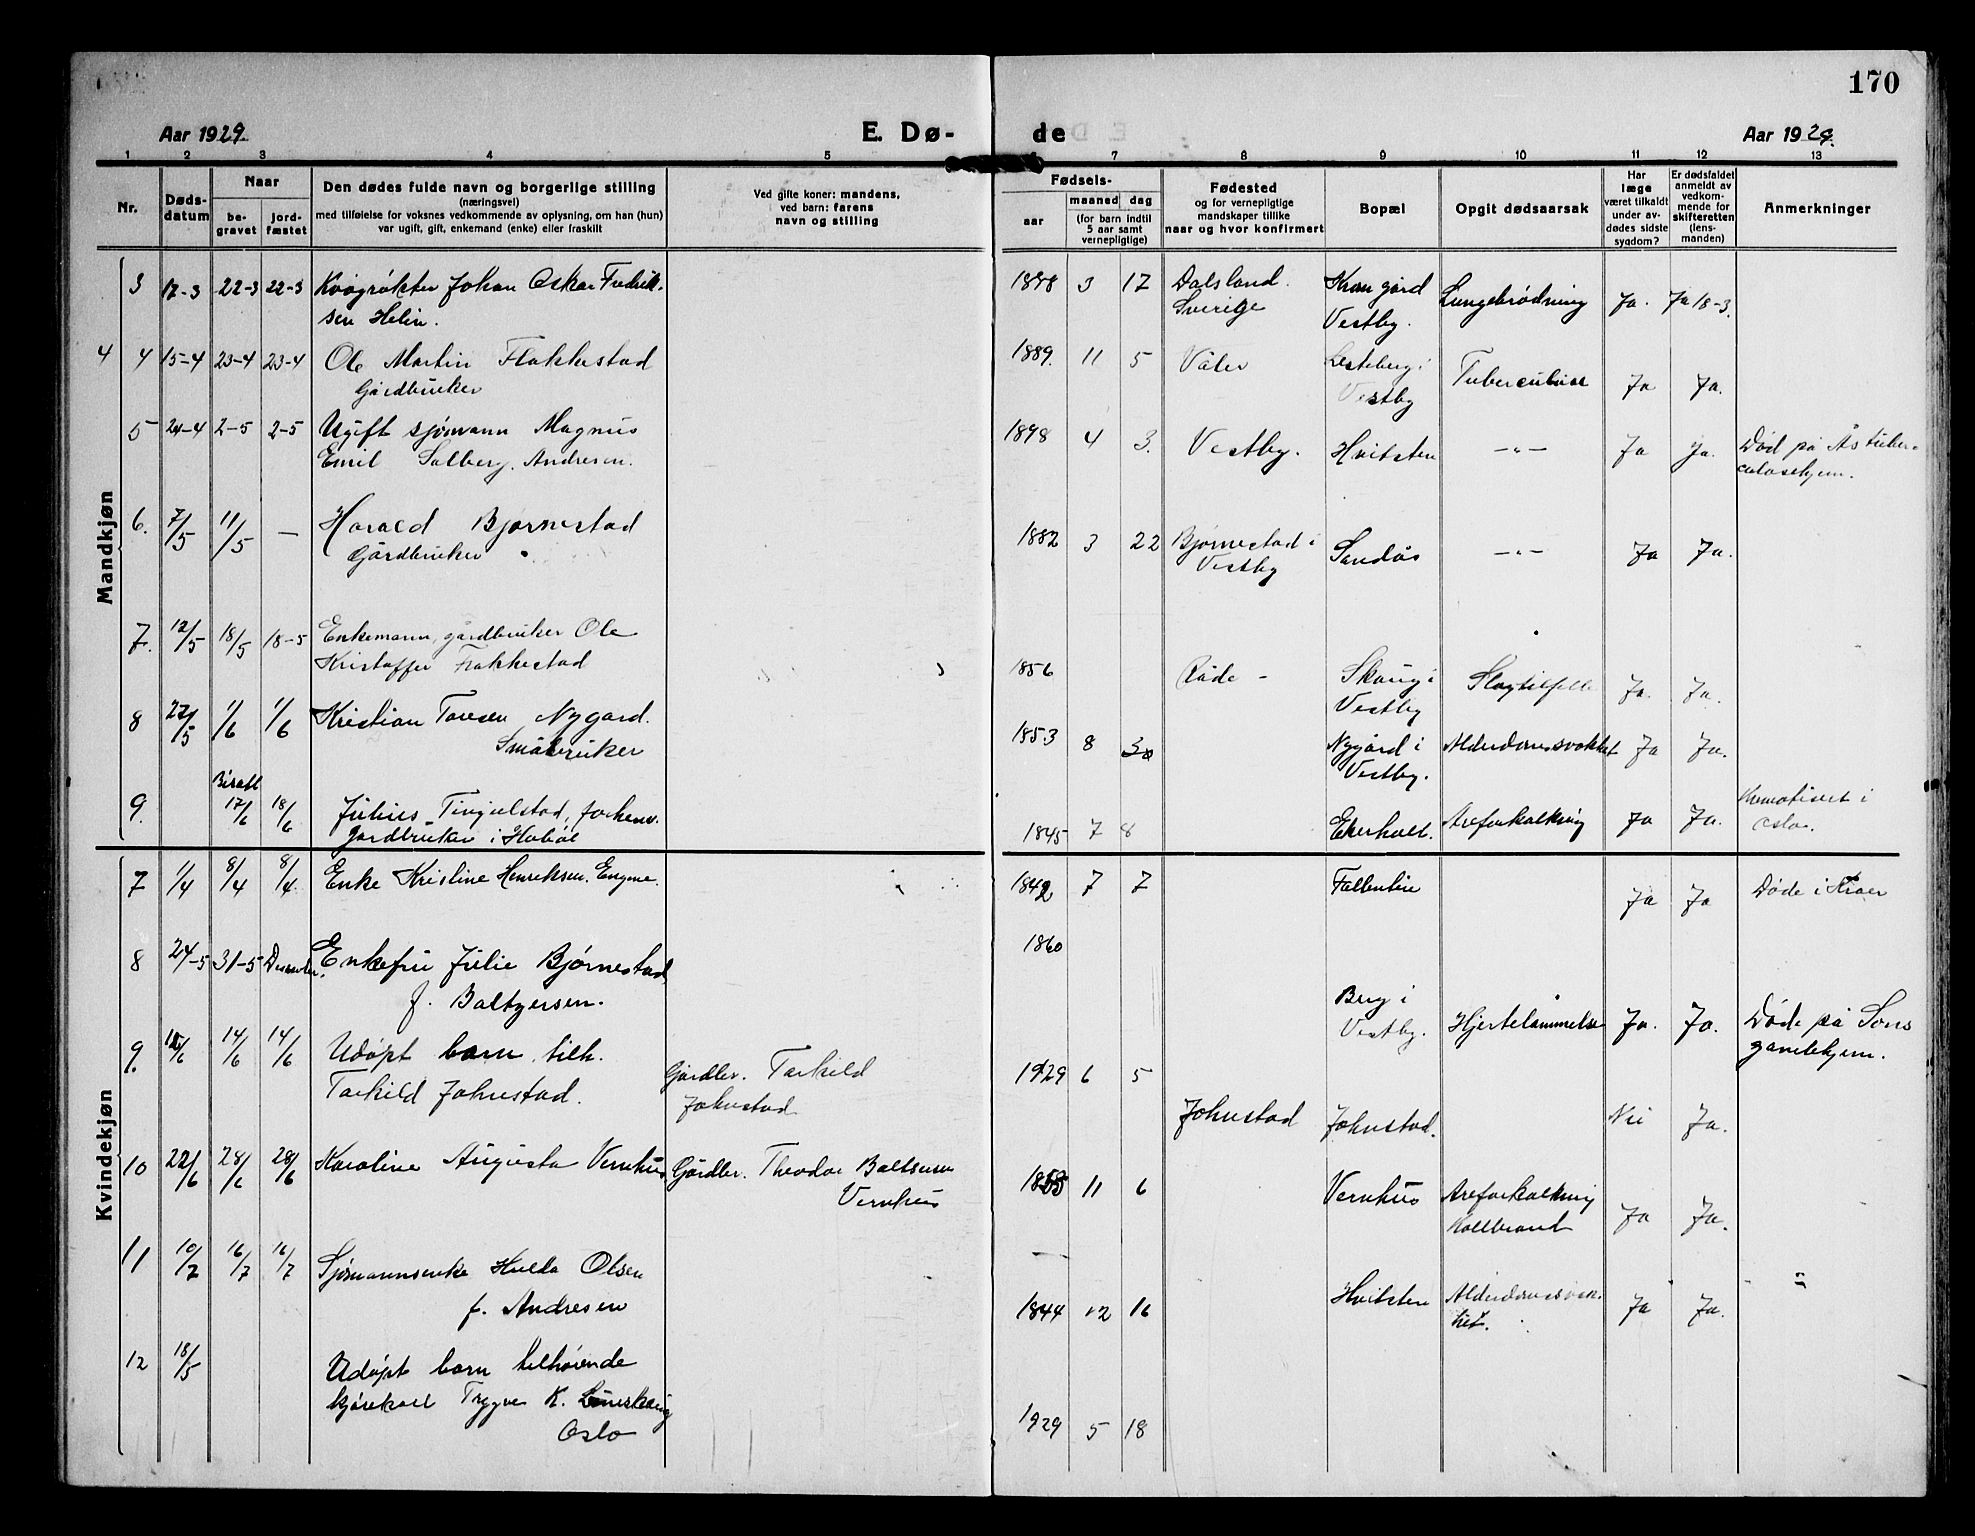 170
Aar 1929.
E. Dø-
de
Aar 1929.
1 2 3 4 5 7 8 9 10 11 12 13
Nr.
Døds-
datum
Naar
be-
gravet
jord-
fæstet
Den dødes fulde navn og borgerlige stilling
(næringsvei)
med tilføielse for voksnes vedkommende av oplysning, om han (hun)
var ugift, gift, enkemand (enke) eller fraskilt
Ved gifte koner: mandens,
ved barn: farens
navn og stilling
Fødsels-
aar
maaned dag
(for barn indtil
5 aar samt
vernepligtige)
Fødested
og for vernepligtige
mandskaper tillike
naar og hvor konfirmert
Bopæl
Opgit dødsaarsak
Har
læge
været tilkaldt
under av-
dødes sidste
sygdom?
Er dødsfaldet
anmeldt av
vedkom-
mende for
skifteretten
(lens-
manden)
Anmerkninger
Mandkjøn
3 17-3 22-3 22-3 Kvægrøkter Johan Oskar Fredrik-
sen Helin.
1888 3 17 Dalsland.
Sverige
Krom gård
Vestby.
Lungebrødning Ja. Ja 18-3.
4 4 15-4 23-4 23-4 Ole Martin Flakkestad
Gårdbruker
1889. 11 5 Våler Lesteberg i
Vestby
Tuberculose Ja Ja.
5 24-4 2-5 2-5 Ugift sjømann Magnus
Emil Solberg. Andresen.
1898 4 3. Vestby. Hvitsten —"— Ja Ja. Død på Ås tuber-
culosehjem.
6. 7/5 11/5 — Harald Bjørnestad
Gårdbruker
1882 3 22 Bjørnestad i
Vestby
Sandås —"— Ja Ja.
7. 12/5 18/5 18-5 Enkemann, gårdbruker Ole
Kristoffer Frakkestad
1856 Råde - Skaug i
Vestby
Slagtilfelle Ja. Ja.
8 27/5 1/6 1/6 Kristian Toresen Nygard.
Småbruker
1853 8 30 Nygård i
Vestby.
Alderdomssvakhet Ja Ja.
9. Bisatt
17/6 18/6 Julius Tingulstad, forhenv.
gardbruker i Hobøl
1845 7 8 Ekerholt. Areforkalkning Ja Ja. Kremotiset i
Oslo.
Kvindekjøn
7 1/4 8/4 8/4. Enke Kristine Henriksen. Engene.
1842 7 7 Fallentin Ja Ja Døde i Kroer
8 24-5 31-5 Enkefru Julie Bjørnestad,
f. Baltzersen.
1860
Berg i
Vestby.
Hjertelammelse Ja. Ja. Døde på Sons
gamlehjem.
9. 14/6 14/6 Udøpt barn tilh.
Torkild Johnstad.
Gårdbr. Torkild
Johnstad
1929 6 5
Johnstad Johnstad. Nei Ja.
10 22/6 28/6 28/6 Karoline Augusta Vernhus
Gårdbr. Theodor Baltsersen
Vernhus
1855 11 6 Vernhus Areforkalkning
Koldbrand
Ja Ja.
11 10/7 16/7 16/7 Sjømannsenke Hulda Olsen
f. Andresen
1844 12 16 Hvitsten Alderdomssvak-
het.
Ja Ja.
12 18/5 Udøpt barn tilhørende
Trygve K.
Oslo
1929 5 18